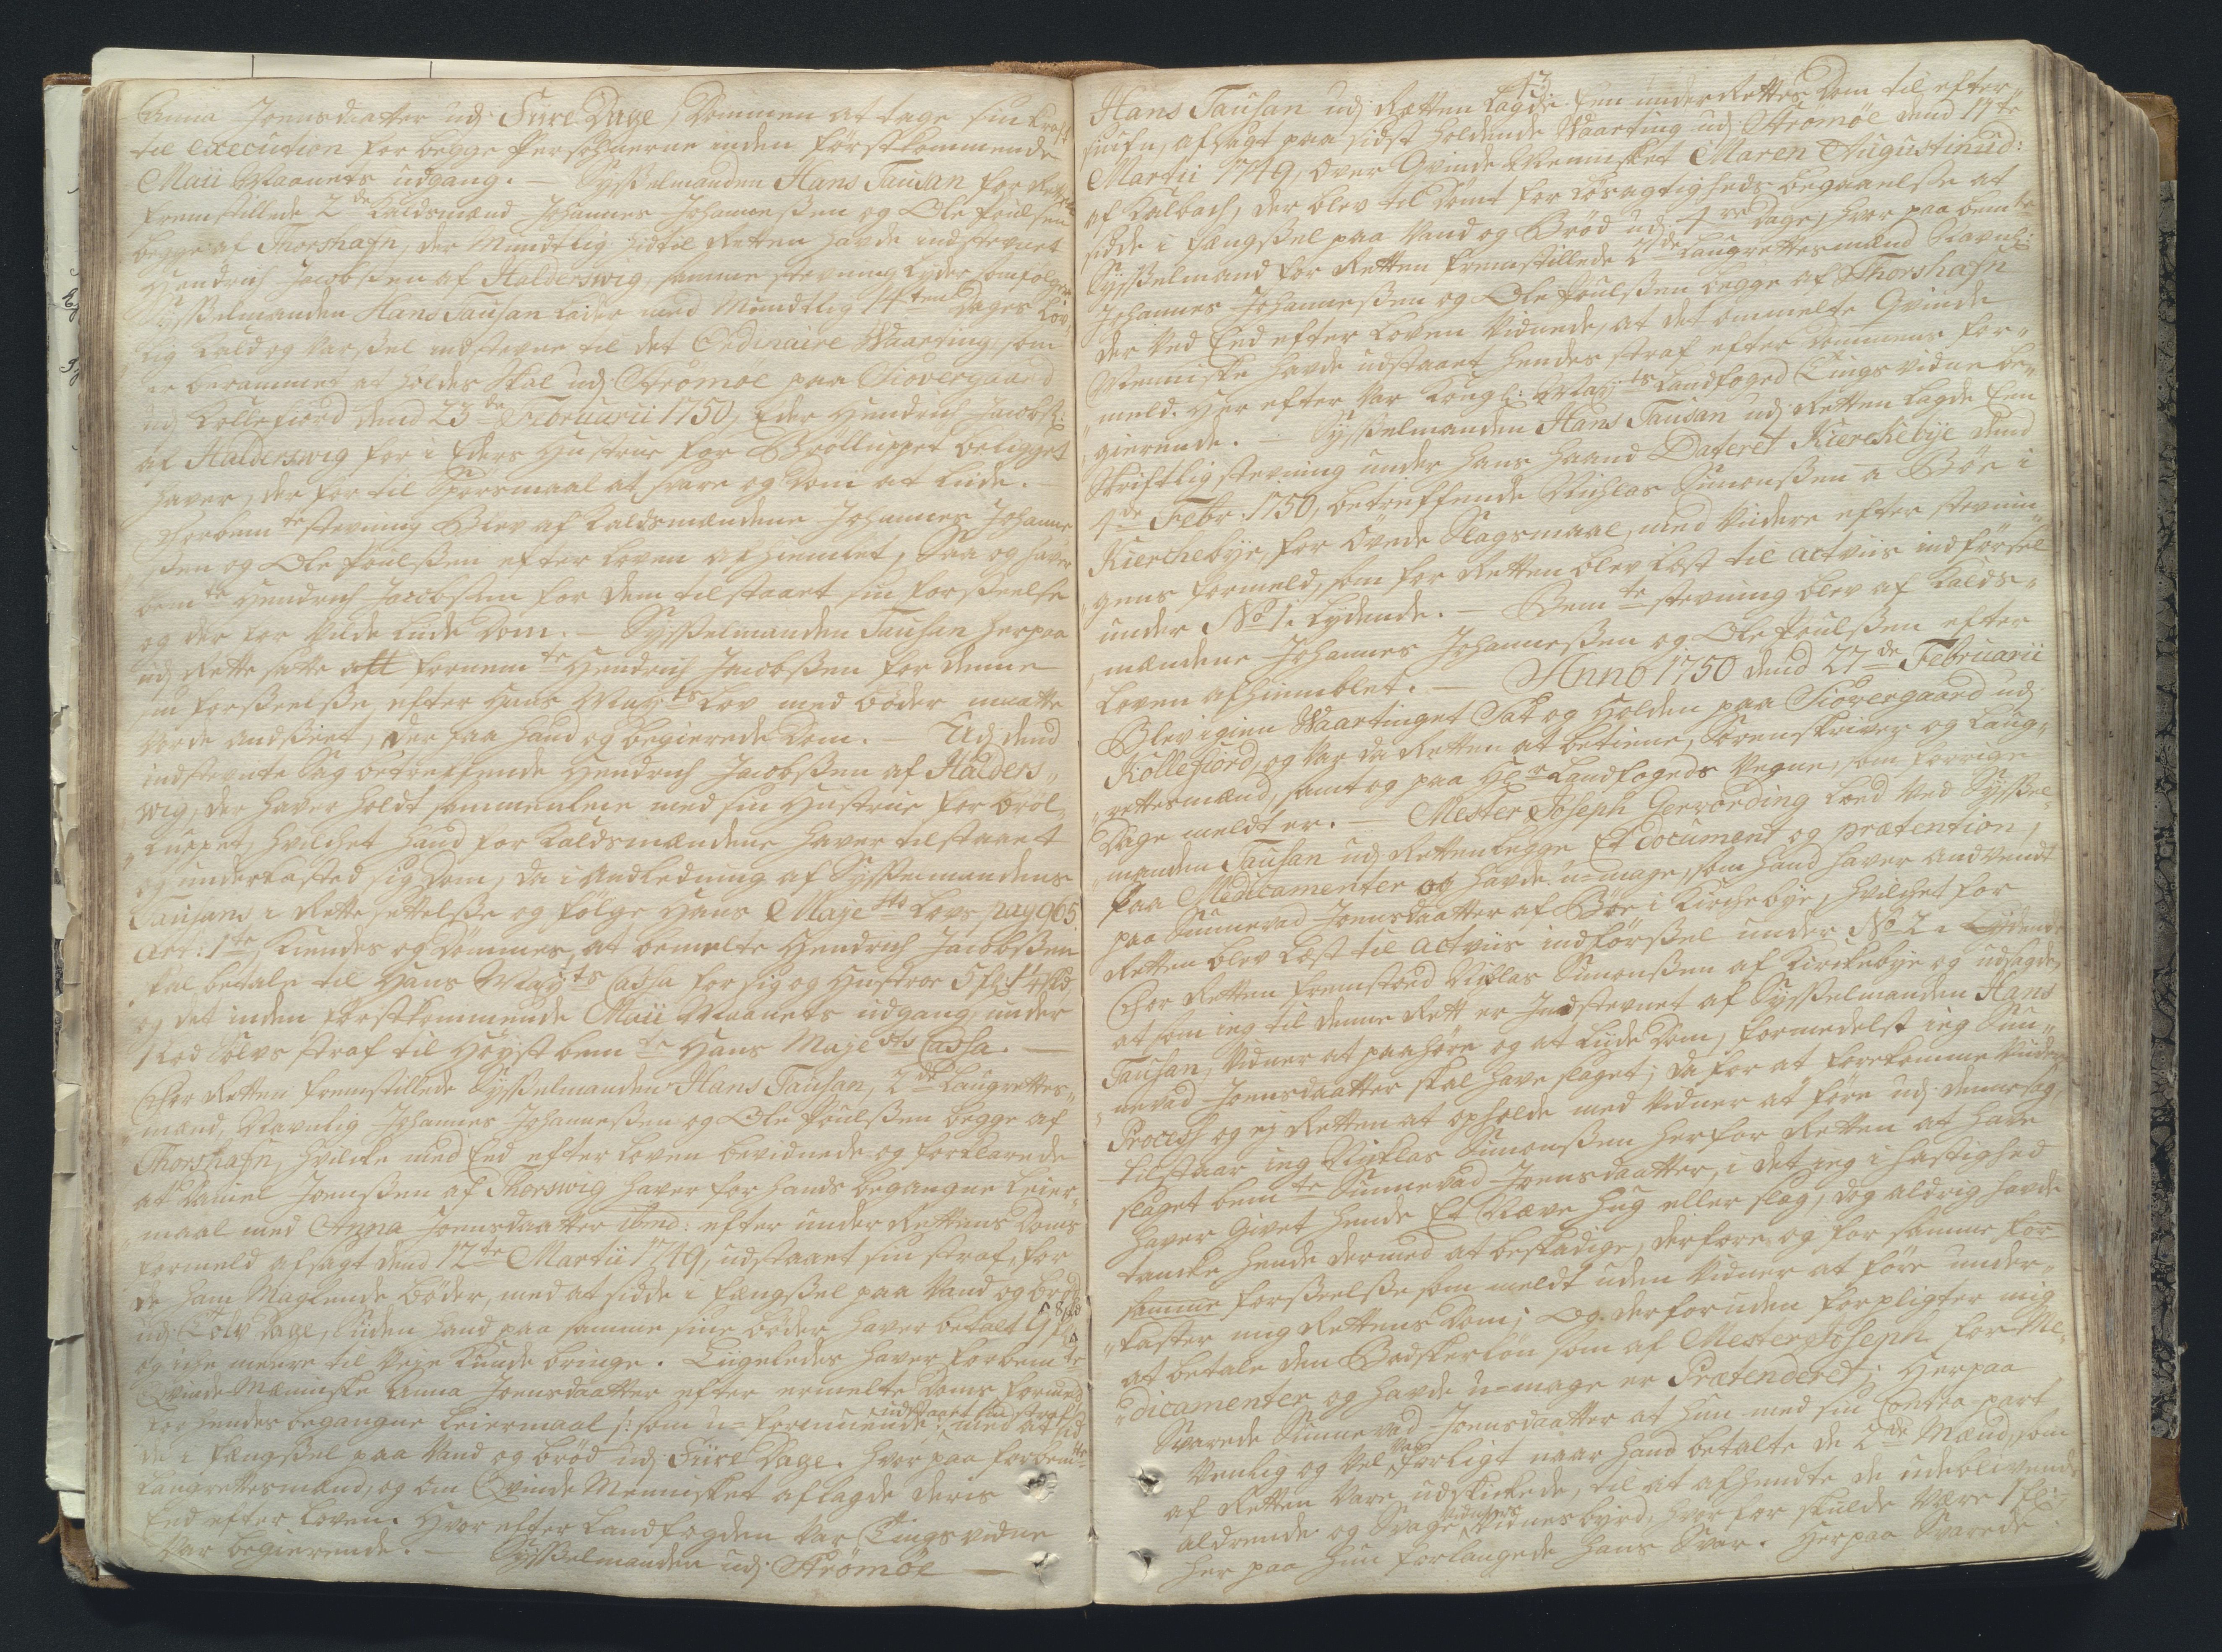 Anna Joensdaatter udj Fiire Dage, Dommen at tage sin Kraft
til execution for begge Persohnerne inden förstkommende
Maii Maanets udgang. — Sysselmanden Hans Tausan for Retten
fremstillede 2de Kaldsmænd Johannes Johannessen og Ole Poulsen
begge af Thorshafn, der Mundtlig hidtil Retten havde indstevnet
Hendrich Jacobsen af Halderswig, samme stevning lyder som følger
Sysselmanden Hans Tausan lader med Mundtlig 14ten Dages Lov„
lig Kald og Varssel indstevne til det Ordinaire Waarting, som
er berammet at holdes skal udj Strömöe paa Siovergaard
udj Kollefiord dend 23de Februarii 1750, Eder Hendrich Jacobs:
af Halderswig for i Eders Hustrue for Brølluppet beligget
haver, der for til Spörsmaal at svare og Dom at liide. —
Forbemte stevning Blev af Kaldsmændene Johannes Johannes„
sen og Ole Poulssen efter Loven afhiemlet, Saa og haver
bemte Hendrich Jacobsen for dem tilstaaet sin forseelse
og der for vilde liide Dom. — Sysselmanden Tausan herpaa
udj Rette satte att fornemte Hendrich Jacobssen for denne
sin forseelse, efter Hans Mayts Lov med Böder maatte
vorde andseet, der paa hand og begierede Dom. — Udj dend
indstevnte Sag betreffende Hendrich Jacobssen af Halders„
wig, der haver holdt sammenleie med sin Hustrue for bröl„
„luppet, hvilchet hand for Kaldsmændene haver tilstaaet
og underkasted sig Dom, da i Andledning af Sysselmandens
Tausans i Rettesettelse og fölge Hans Mayests Lovs pag 965
Art: 1te, Kiendes og Dömmes, at bemelte Hendrich Jacobssen
skal betale til Hans Mayts Cassa for sig og Hustroe 5 fl: 14 sk,
og det inden förstkommende Maii Maanets udgang, under
1 Lod Sölvs straf til Höystbemte Hans Majests Cassa. —
For Retten fremstillede Sysselmanden Hans Tausan, 2de Laugrettes„
„mænd, Navnlig Johannes Johannessen og Ole Poulssen begge af
Thorshafn, hvilcke med Eed efter Loven bevidnede og forklarede
at Daniel Joenssen af Thorswig haver for hands begangne Leier„
„maal med Anna Joensdaatter ibmd: efter under Rettens Doms
formeld afsagt dend 12te Martii 1749, udstaaet sin straf, for
de ham Maglende böder, med at sidde i fængssel paa Vand og bröd
udj Tolv Dage, siiden hand paa samme siine böder haver betalt 9 fl: 8 sk
og icke meere til Veye kunde bringe. Liigeledes haver forbemte
Qvinde Menniske Anna Joensdaatter efter ermelte Doms formeld
for hendes begangne Leiermaal /: som u-formuende: udstaaet sin straf med at sid„
de i fængssel paa Vand og bröd udj Fiire Dage. Hvor paa forbemte
Laugrettesmænd, og om Qvinde Mennisket aflagde deris
Eed efter Loven. Hvor efter Landfogden var Tings vidne
var begierende. — Sysselmanden udj Strömöe —
13
Hans Tausan udj Retten lagde een under Rettes Dom til efter„
siufn, afsagt paa sidst holdende Waarting udj Strömöe dend 11te
Martii 1749, over Qvinde Mennisket Maren Augustinud:
af Kalbach, der blev til Dömt for Lösagtigheds begaaelse at
sidde i fængssel paa Vand og Bröd udj 4re Dage, hvor paa bemte
Sysselmand for Retten fremstillede 2de Laugrettesmænd Navnl:
Johannes Johannessen og Ole Poulssen begge af Thorshafn
der ved Eed efter Loven vidnede, at det ommelte Qvinde
Menniske havde udstaaet hendes straf efter Dommens for„
„meld. Her efter var Kongl: Mayts Landfoged Tings vidne be„
gierende. — Sysselmanden Hans Tausan udj Retten lagde Een
Skriftlig stevning under hans haand Dateret Kierckebye dend
4de Febr: 1750, betreffende Nichlas Simonssen a Böe i
Kierckebye, for övede Slagsmaal, med videre efter stevnin„
„gens formeld, som for Retten blev læst til actviis indförsel
under No 1. lydende. — Bemte stevning blev af Kalds„
„mændene Johannes Johannessen og Ole Poulssen efter
Loven afhiemblet. — Anno 1750 dend 27de Februarii
Blev igien Waartinget Sat og Holden paa Siovergaard udj
Kollefiord, og var da Retten at betiene, Sorenskriver og Laug„
„rettesmænd, samt og paa Hr Landfogeds Vegne, som forrige
Dage meldt er. — Mester Joseph Gerwording loed ved Syssel„
„manden Tausan udj Retten legge Et Document og prætention,
paa Medicamenter og havde u-mage, som hand haver andvendt
paa Sunnevad Joensdaatter af Böe i Kirckebye, hvilchet for
Retten blev læst til actviis indförssel under No 2. Lydende
For Retten fremstoed Nicklas Simonssen af Kirckebye og udsagde,
at som ieg til denne Rett er Indstevnet af Sysselmanden Hans
Tausan, Vidner at paahöre og at liide Dom, formedelst ieg Sun„
„nevad Joensdaatter skal have slaget; Da for at forekomme videre
Process og ej Retten at opholde med Vidner at före udj denne sag,
tilstaar ieg Nicklas Simonssen herfor Retten at have
slaget bemte Sunnevad Joensdaatter, i det ieg i hastighed
haver givet hende Et Næve hug eller slag, dog aldrig havde
tancke hende dermed at beskadige, derfore og for samme for
samme forseelse som meldt uden Vidner at före under„
„kaster mig Rettens Dom; Og derforuden forpligter mig
at betale den Badskerlön som af Mester Joseph for Me„
„dicamenter og havde u-mage er Prætenderet; Herpaa
Svarede Sunnevad Joensdaatter at hun med sin Contra part
Venlig og Vel var forligt naar hand betalte de 2de Mænd, som
af Retten vare udskickede, til at afhendte de udeblivende
aldrende og Svage Vidners Vidnesbyrd, hvor for skulde være 1 fl:
her paa hun forlangede hans Svar. Herpaa Svarede